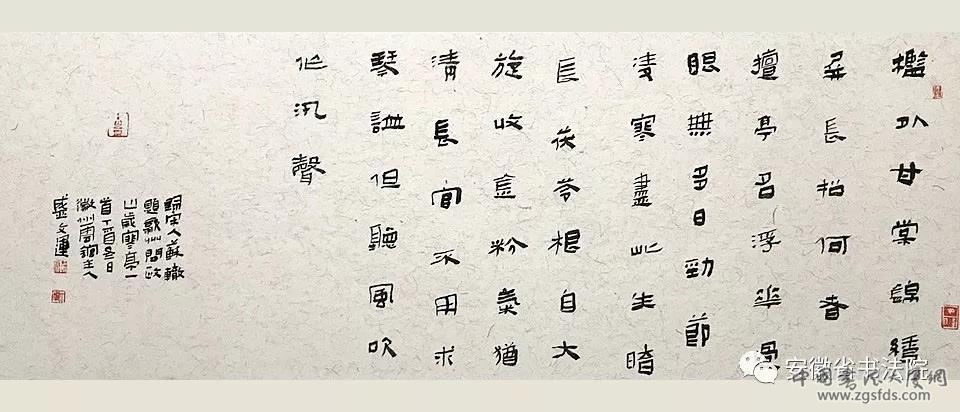 檻外甘棠錦繡
屏長松何者
擅亭名浮花過
眼無多日勁節
凌寒盡此生暗
長茯苓根自大
旋收金粉氣猶
清長官不用求
琴譜但聽風吹
作汎聲
宋人蘇轍
題歙州問政
山歲寒亭一
首丁酉冬日
徽州主人
盛文運
安徽省书法院
中国书法大厦網
www.zgsfds.com